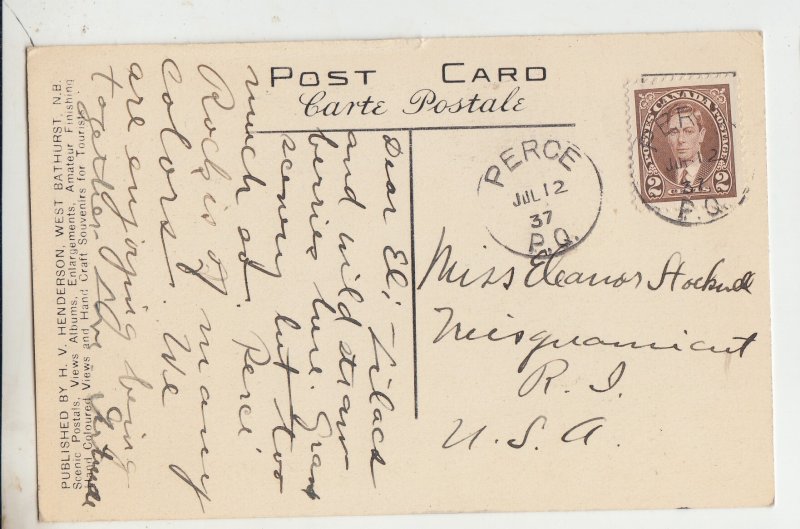 POST CARD
Carte Postale
POSTES CANADA POSTAGE
2 CENTS 2
PERCE
JUL 12
37
P.Q.
PERCE
JUL 12
37
P.Q.
Dear El; Lilacs
and wild straw
berries here. Grand
scenery but too
much of. Percé
Rock is of many
colors. We
are enjoying being
together. Love Gertrude
Miss Eleanor Stockwell
Misquamicut
R. I.
U. S. A.
PUBLISHED BY H. V. HENDERSON, WEST BATHURST, N.B.
Scenic Postals, Views Albums, Enlargements, Amateur Finishing
Hand Coloured Views and Hand Craft Souvenirs for Tourists